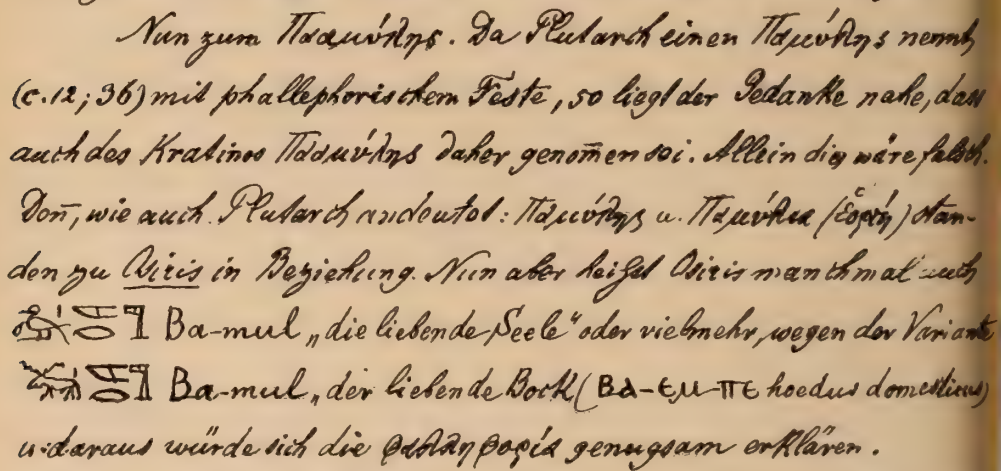 Nun zum Πααμύλης. Da Plutarch einen Παμύλης nennt
(c. 12; 36) mit phallephorischem Feste, so liegt der Gedanke nahe, dass
auch des Kratinos Πααμύλης daher genom̄en sei. Allein dies wäre falsch.
Den̄, wie auch Plutarch andeutet: Παμύλης u. Παμύλια (ἑορτή) stan-
den zu Osiris in Beziehung. Nun aber heißet Osiris manchmal auch
Ba-mul „die liebende Seele" oder vielmehr, wegen der Variante
Ba-mul „der liebende Bock (ⲃⲁ-ⲉⲙ-ⲡⲉ hoedus domesticus)
u. daraus würde sich die φαλληφορία genugsam erklären.